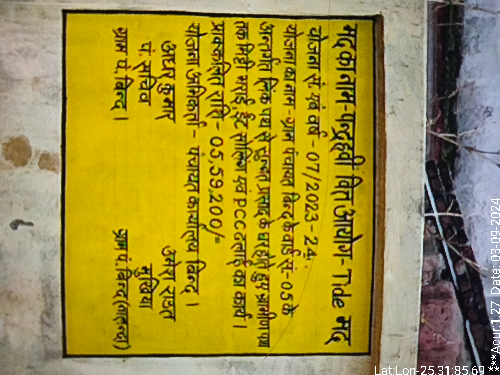 मद का नाम- पन्द्रहवीं वित आयोग- Tide मद
योजना सं. एवं वर्ष - 07/2023-24.
योजना का नाम - ग्राम पंचायत बिन्द के वार्ड सं- 05 के
अन्तर्गत पक्की पथ से सुजित प्रसाद के घर होते हुए ग्रामीण पथ
तक मिट्टी भराई, ईंट सोलिंग एवं PCC ढलाई का कार्य।
प्राक्कलित राशि - 05,59,200/=
योजना अभिकर्ता - पंचायत कार्यालय बिन्द।
उदय कुमार
पं. सचिव
ग्राम पं. बिन्द।
उमेश राउत
मुखिया
ग्राम पं. बिन्द (नालन्दा)
Lat:Lon-25.31:85.69
***Aour:1.27 Date: 03-09-2024